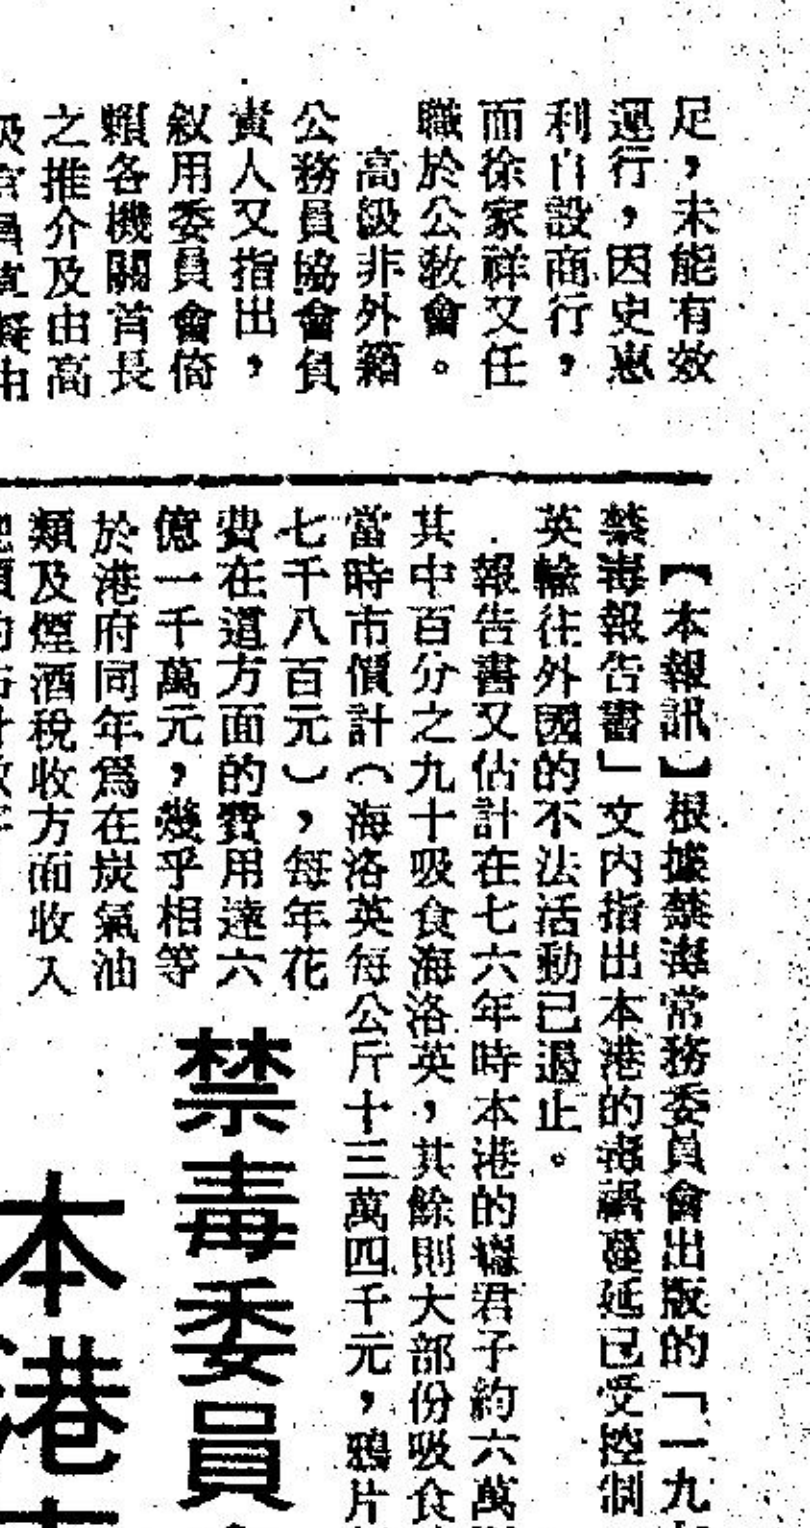 足，未能有效
運行，因史惠
利自設商行，
而徐家祥又任
職於公教會。
高級非外籍
公務員協會負
責人又指出，
敘用委員會倚
賴各機關首長
之推介及由高
【本報訊】根據禁毒常務委員會出版的「一九
禁毒報告書」文內指出本港的毒禍蔓延已受控制
英輸往外國的不法活動已遏止。
報告書又估計在七六年時本港的癮君子約六萬
其中百分之九十吸食海洛英，其餘則大部份吸食
當時市價計（海洛英每公斤十三萬四千元，鴉片
七千八百元），每年花
費在這方面的費用達六
億一千萬元，幾乎相等
於港府同年爲在炭氣油
類及煙酒稅收方面收入
禁毒委員
本港